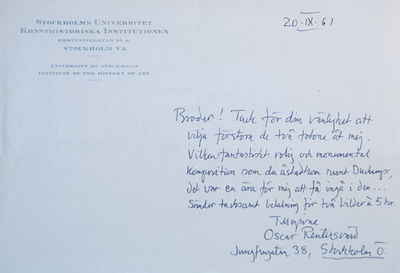 STOCKHOLMS UNIVERSITET
KONSTHISTORISKA INSTITUTIONEN
DROTTNINGGATAN 95 A
STOCKHOLM VA
UNIVERSITY OF STOCKHOLM
INSTITUTE OF THE HISTORY OF ART
20-IX-61
Broder! Tack för din vänlighet att
vilja förstora de två fotona åt mig.
Vilken fantastiskt rolig och monumental
komposition som du åstadkom runt Duchamp,
det var en ära för mig att få ingå i den...
Sänder tacksamt betalning för två bilder à 5 kr.
Tillgivne
Oscar Reutersvärd
Jungfrugatan 38, Stockholm Ö.